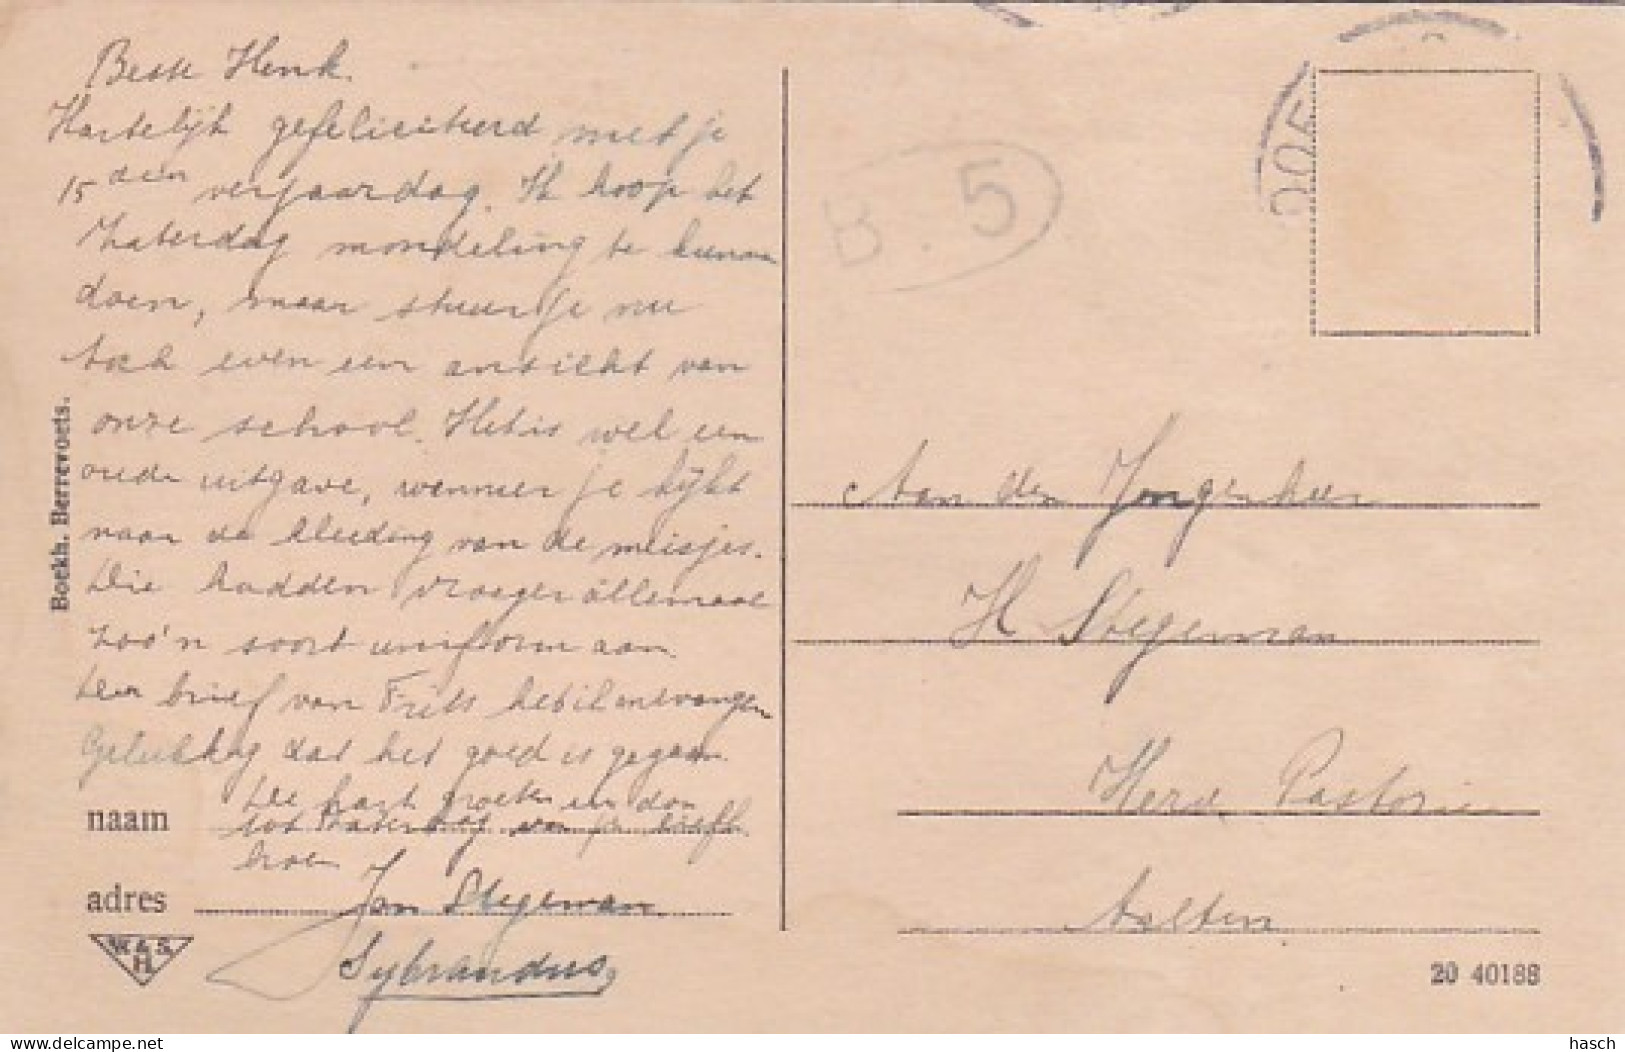 Beste Henk.
Hartelijk gefeliciteerd met je
15den verjaardag. Ik hoop het
Zaterdag mondeling te kunnen
doen, maar stuur je nu
toch even een ansicht van
onze school. Het is wel een
oude uitgave, wanneer je kijkt
naar de kleeding van de meisjes.
Die hadden vroeger allemaal
zoo'n soort uniform aan.
Den brief van Frits heb ik ontvangen
Gelukkig dat het goed is gegaan.
De hart. groeten en dan
tot Zaterdag van je liefh.
broer
Jan Stegeman
Sybrandus
naam
adres
W. & S.
H.
Boekh. Berrevoets.
B. 5
Aan den Jongenheer
H Stegeman
Herv. Pastorie
Aalten
20 40188
hasch
delcampe.net